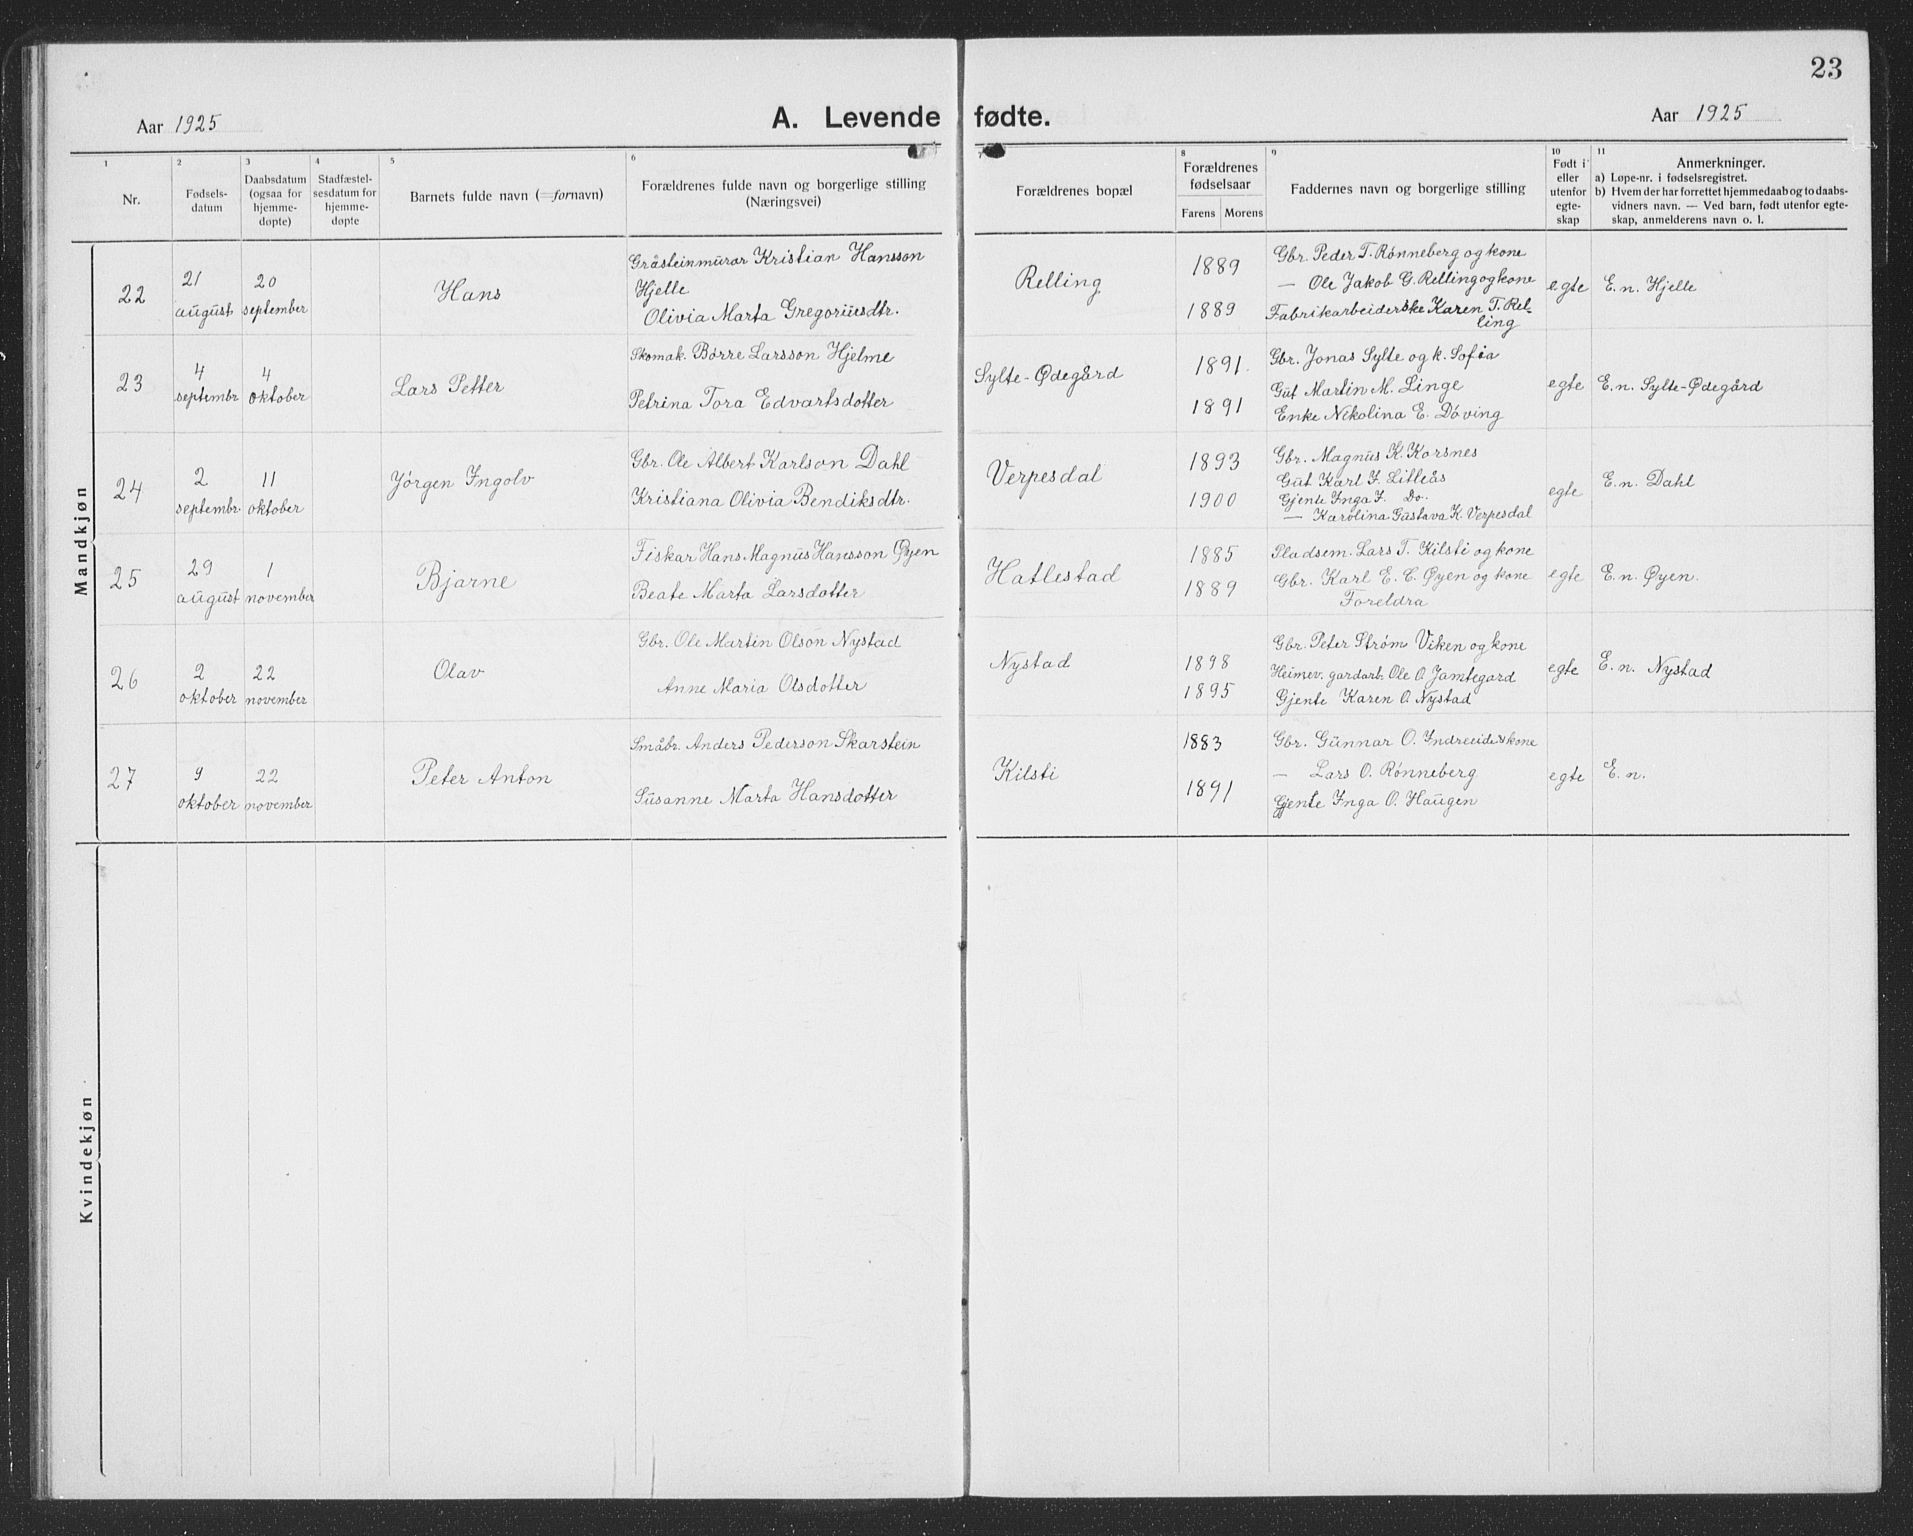 23
Aar 1925
A. Levende fødte.
Aar 1925
1
2
3
4
5
6
7
8
9
10
11
Nr.
Fødsels-
datum
Daabsdatum
(ogsaa for
hjemme-
døpte)
Stadfæstel-
sesdatum for
hjemme-
døpte
Barnets fulde navn (=fornavn)
Forældrenes fulde navn og borgerlige stilling
(Næringsvei)
Forældrenes bopæl
Forældrenes
fødselsaar
Farens Morens
Faddernes navn og borgerlige stilling
Født i
eller
utenfor
egte-
skap
Anmerkninger.
a) Løpe-nr. i fødselsregistret.
b) Hvem der har forrettet hjemmedaab og to daabs-
vidners navn. — Ved barn, født utenfor egte-
skap, anmelderens navn o. l.
Mandkjøn
22
21
august
20
september
Hans
Gråsteinmurar Kristian Hansson
Hjelle
Olivia Marta Gregoriusdtr.
Relling
1889
1889
Gbr. Peder T. Rønneberg og kone
— Ole Jakob G. Relling og kone
Fabrikarbeiderske Karen T. Rel-
ling
egte
E. n. Hjelle
23
4
septembr
4
oktober
Lars Petter
Skomak. Børre Larsson Hjelme
Petrina Tora Edvartsdotter
Sylte-Ødegård
1891.
1891
Gbr. Jonas Sylte og k. Sofia
Gut Martin M. Linge
Enke Nikolina E. Døving
egte
E. n. Sylte-Ødegård
24
2
septembr.
11
oktober
Jørgen Ingolv
Gbr. Ole Albert Karlson Dahl
Kristiana Olivia Bendiksdtr.
Verpesdal
1893
1900
Gbr. Magnus K. Korsnes
Gut Karl J. Litleås
Gjente Inga J. Do.
— Karolina Gustava K. Verpesdal
egte
E. n. Dahl
25
29
august
1
november
Bjarne
Fiskar Hans Magnus Hansson Øyen
Beate Marta Larsdotter
Hatlestad
1885
1889
Pladsem. Lars T. Kilsti og kone
Gbr. Karl E. C. Øyen og kone
Foreldra
egte
E. n. Øyen.
26
2
oktober
22
november
Olav
Gbr. Ole Martin Olson Nystad
Anne Maria Olsdotter
Nystad
1898
1895
Gbr. Peter Strøm Viken og kone
Heimev. gardarb. Ole O. Jamtegard
Gjente Karen O. Nystad
egte
E. n. Nystad
27
9
oktober
22
november
Peter Anton
Småbr. Anders Pederson Skarstein
Susanne Marta Hansdotter
Kilsti
1883
1891
Gbr. Gunnar O. Indreeide & kone
— Lars O. Rønneberg
Gjente Inga O. Haugen
egte
E. n.
Kvindekjøn